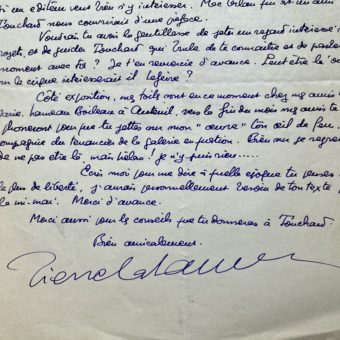 un éditeur veut bien s'y intéresser. Mac Orlan
Touchard nous couvrirait d'une préface.
Voudrais-tu avoir la gentillesse de jeter un regard intéressé
projets, et de guider Touchard qui brûle de te connaître et de parler
moment avec toi ? Je t'en remercie d'avance. Peut-être le
sur le cirque intéresserait il
Côté exposition, mes toiles sont en ce moment chez
hameau Boileau à Auteuil, vers la fin du mois
pour que tu jettes sur mon "œuvre" ton œil de
compagnie du tenancier de la galerie en question. Bien sûr je
de ne pas être là, mais hélas ! je n'y puis rien.....
Écris moi pour me dire à quelle époque tu penses
peu de liberté, j'aurais personnellement besoin de ton texte
la mi-mai. Merci d'avance.
Merci aussi pour les conseils que tu donneras à Touchard.
Bien amicalement.